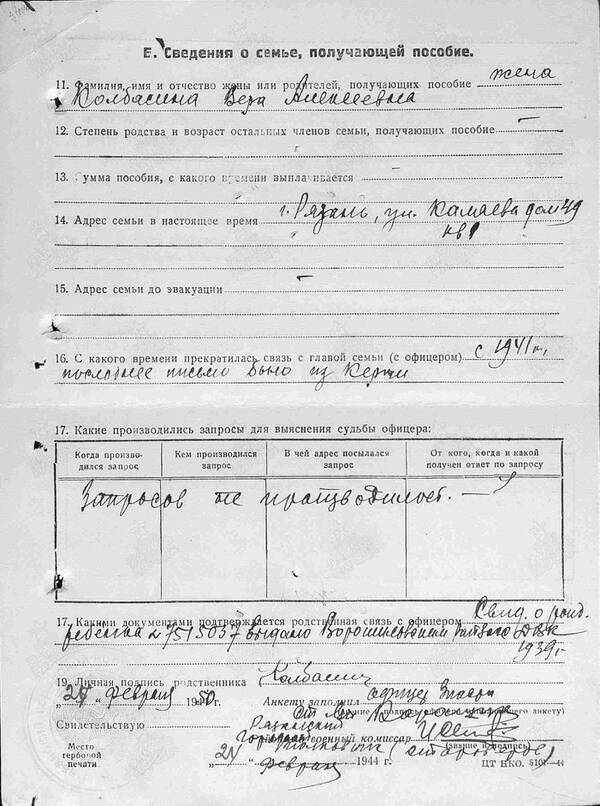 Е. Сведения о семье, получающей пособие.
11. Фамилия, имя и отчество жены или родителей, получающих пособие жена
Колбасина Вера Алексеевна
12. Степень родства и возраст остальных членов семьи, получающих пособие —
13. Сумма пособия, с какого времени выплачивается —
14. Адрес семьи в настоящее время г. Рязань, ул. Каляева дом 49
кв 1
15. Адрес семьи до эвакуации —
16. С какого времени прекратилась связь с главой семьи (с офицером) с 1941 г.,
последнее письмо было из Керчи
17. Какие производились запросы для выяснения судьбы офицера:
Когда производился запрос
Кем производился запрос
В чей адрес посылался запрос
От кого, когда и какой получен ответ по запросу
Запросов не производилось. —
17. Какими документами подтверждается родственная связь с офицером Свид. о рожд.
ребенка выдано Ворошиловским
1939 г.
19. Личная подпись родственника Колбасин
"24" февраля 1950 г. Анкету заполнил
анкету)
Свидетельствую — Рязанский
Городской военный комиссар
Место гербовой печати
(звание и подпись)
"24" февраля 1944 г.
ЦТ НКО.